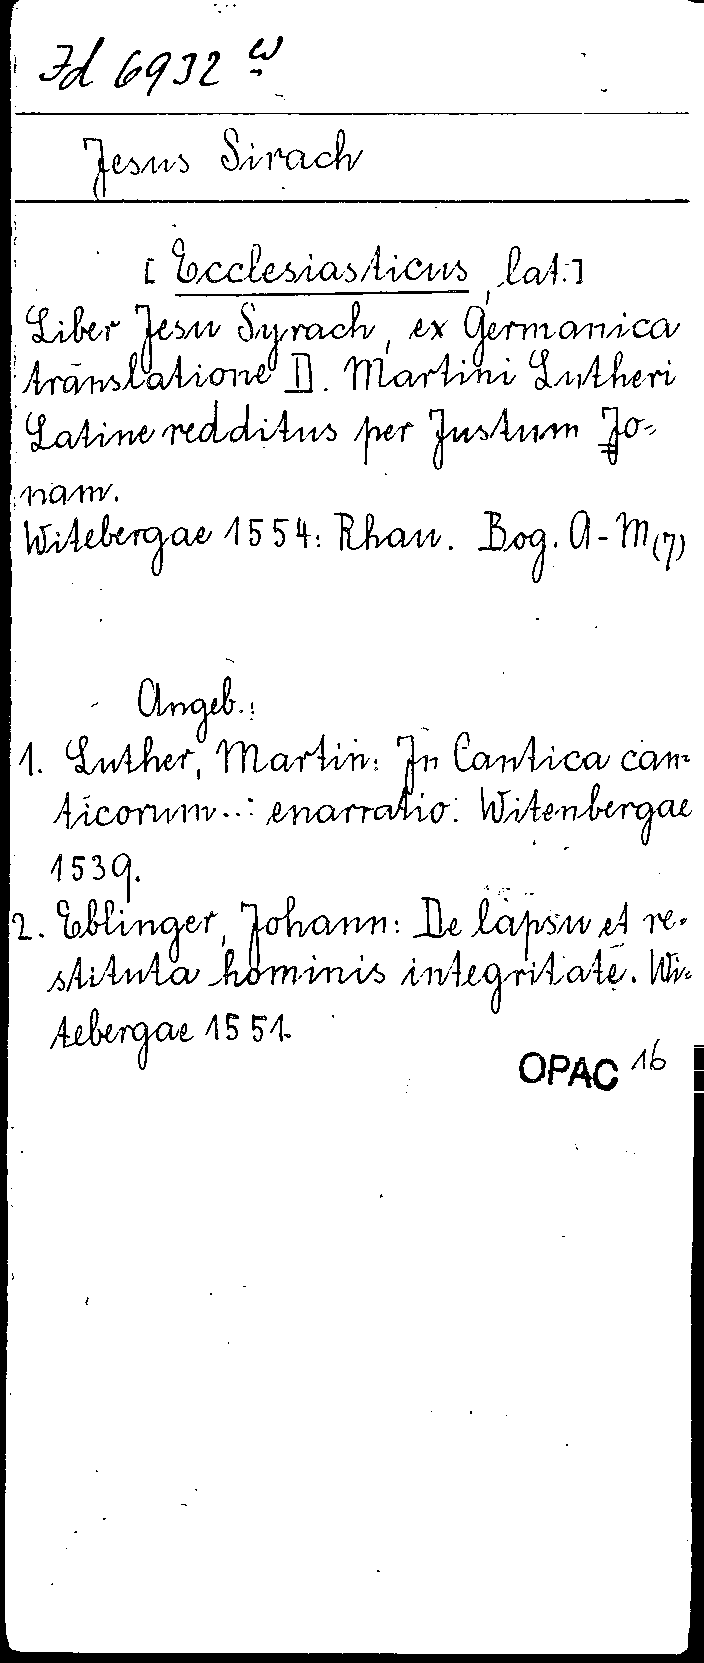 Id 6932 w
Jesus Sirach
[Ecclesiasticus, lat.]
Liber Jesu Syrach, ex Germanica
translatione D. Martini Lutheri
Latine redditus per Justum Jo-
nam.
Witebergae 1554: Rhau. Bog. A-M(7)
Angeb.:
1. Luther, Martin: In Cantica can-
ticorum...: enarratio. Witenbergae
1539.
2. Eblinger, Johann: De lapsu et re-
stituta hominis integritate. Wi-
tebergae 1551.
OPAC 16